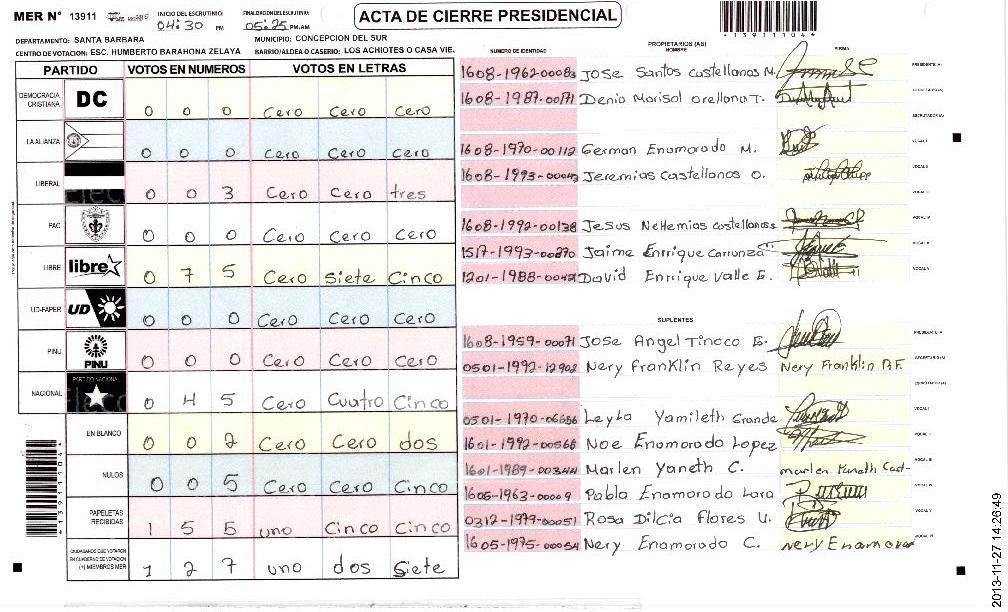 MER N° 13911 INICIO DEL ESCRUTINIO: 04:30 PM FINALIZACION DEL ESCRUTINIO: 05:25 PM AM
ACTA DE CIERRE PRESIDENCIAL
*139111044*
DEPARTAMENTO: SANTA BARBARA MUNICIPIO: CONCEPCION DEL SUR
CENTRO DE VOTACION: ESC. HUMBERTO BARAHONA ZELAYA BARRIO/ALDEA O CASERIO: LOS ACHIOTES O CASA VIE.
PARTIDO VOTOS EN NUMEROS VOTOS EN LETRAS
DEMOCRACIA CRISTIANA DC 0 0 0 Cero Cero Cero
LA ALIANZA 0 0 0 Cero Cero Cero
LIBERAL 0 0 3 Cero Cero tres
PAC 0 0 0 Cero Cero Cero
LIBRE libre 0 7 5 Cero Siete Cinco
UD-FAPER UD 0 0 0 Cero Cero Cero
PINU PINU 0 0 0 Cero Cero Cero
NACIONAL PARTIDO NACIONAL 0 4 5 Cero Cuatro Cinco
EN BLANCO 0 0 2 Cero Cero dos
NULOS 0 0 5 Cero Cero Cinco
PAPELETAS RECIBIDAS 1 5 5 uno Cinco Cinco
CIUDADANOS QUE VOTARON EN CUADERNO DE VOTACION (+) MIEMBROS MER 1 2 7 uno dos Siete
NUMERO DE IDENTIDAD PROPIETARIOS (AS) NOMBRE FIRMA
1608-1962-00083 JOSE Santos castellanos M. PRESIDENTE (A)
1608-1987-00171 Denia Marisol orellana T. SECRETARIO (A)
ESCRUTADOR (A)
1608-1970-00112 German Enamorado M. VOCAL I
1608-1993-00042 Jeremias Castellanos O. VOCAL II
VOCAL III
1608-1992-00138 Jesus Nehemias castellanos VOCAL IV
1517-1993-00270 Jaime Enrrique Carranza VOCAL V
1201-1988-00421 David Enrrique Valle E. VOCAL VI
SUPLENTES
1608-1959-00071 Jose Angel Tinoco E. PRESIDENTE (A)
0501-1992-12902 Nery Franklin Reyes Nery Franklin R.F. SECRETARIO (A)
ESCRUTADOR (A)
0501-1970-06656 Leyla Yamileth Grande VOCAL I
1601-1992-00566 Noe Enamorado Lopez VOCAL II
1601-1989-00344 Marlen Yaneth C. marlen Yaneth Cast- VOCAL III
1605-1963-00009 Pabla Enamorado Lara VOCAL IV
0312-1979-00051 Rosa Dilcia Flores U. VOCAL V
1605-1975-00054 Nery Enamorado C. Nery Enamorado VOCAL VI
2013-11-27 14:26:49